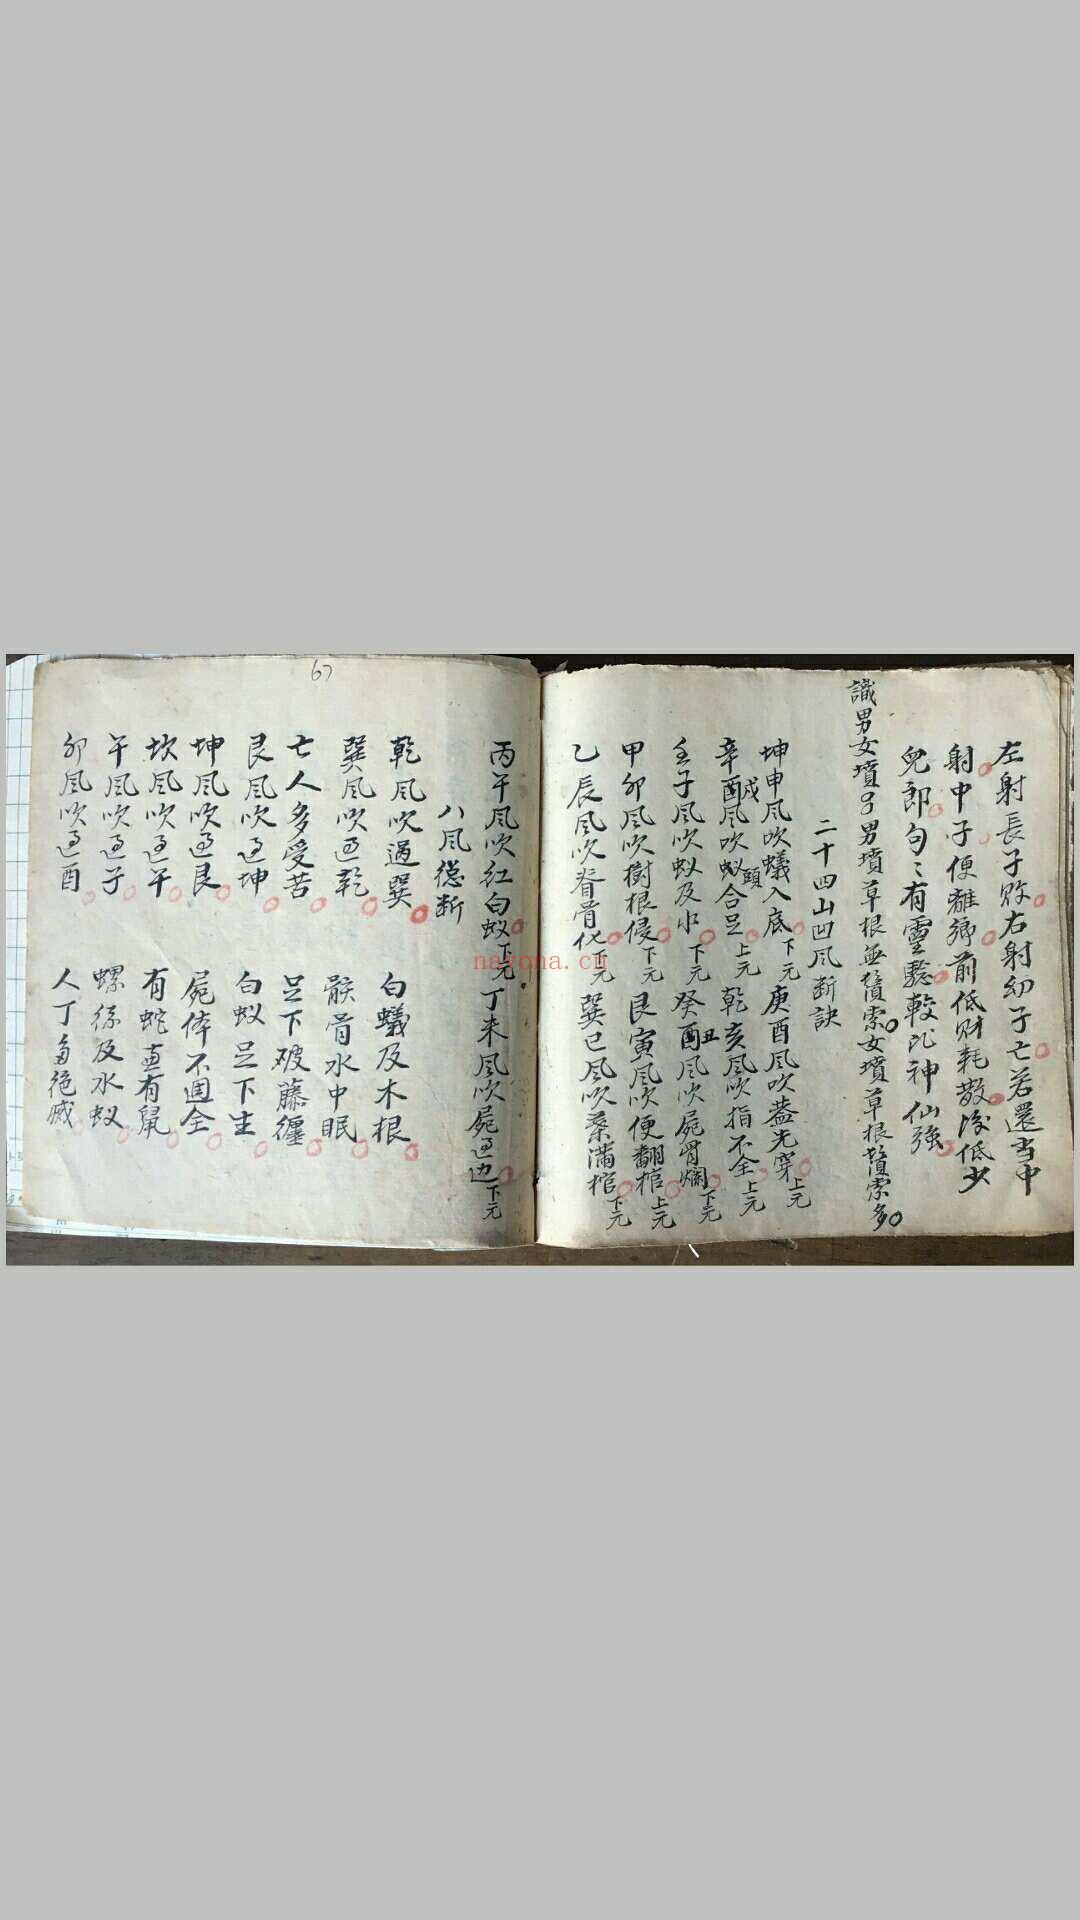 左射長子敗右射幼子亡若還当中
射中子便離鄉前低财耗散後低少
兒郎句々有靈驗較比神仙強
識男女墳
男墳草根無鬚索女墳草根鬚索多
二十四山凹风断訣
坤申风吹蟻入底下元庚酉风吹盖先穿上元
辛戌风吹蚁合足頭上元乾亥风吹指不全上元
壬子风吹蚁及水下元癸丑风吹屍骨爛下元
甲卯风吹樹根侵下元艮寅风吹便翻棺上元
乙辰风吹脊骨化下元巽巳风吹藤滿棺下元
67
丙午风吹红白蚁下元丁未风吹屍过边下元
八风总断
乾风吹過巽 白蟻及木根
巽风吹过乾 骸骨水中眠
亡人多受苦 足下被藤纏
艮风吹过坤 白蚁足下生
坤风吹过艮 屍体不週全
坎风吹过午 有蛇直有鼠
午风吹过子 螺絲及水蚁
卯风吹过酉 人丁多絕滅
nayona.cn